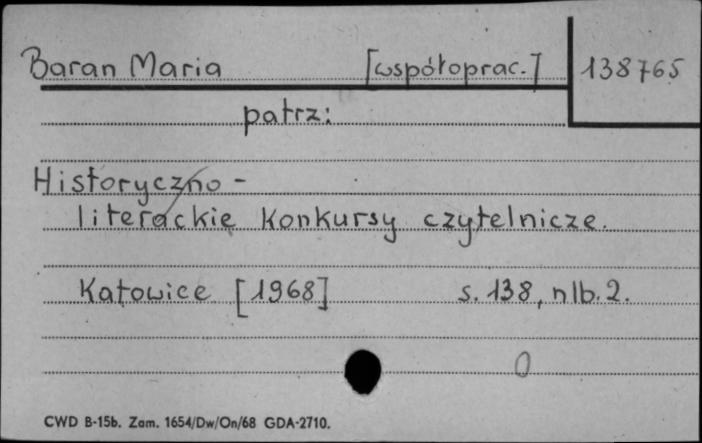 Baran Maria [współoprac.] 138765
patrz:
Historyczno-
literackie konkursy czytelnicze.
Katowice [1968] s. 138, nlb. 2.
0
CWD B-15b. Zam. 1654/Dw/On/68 GDA-2710.